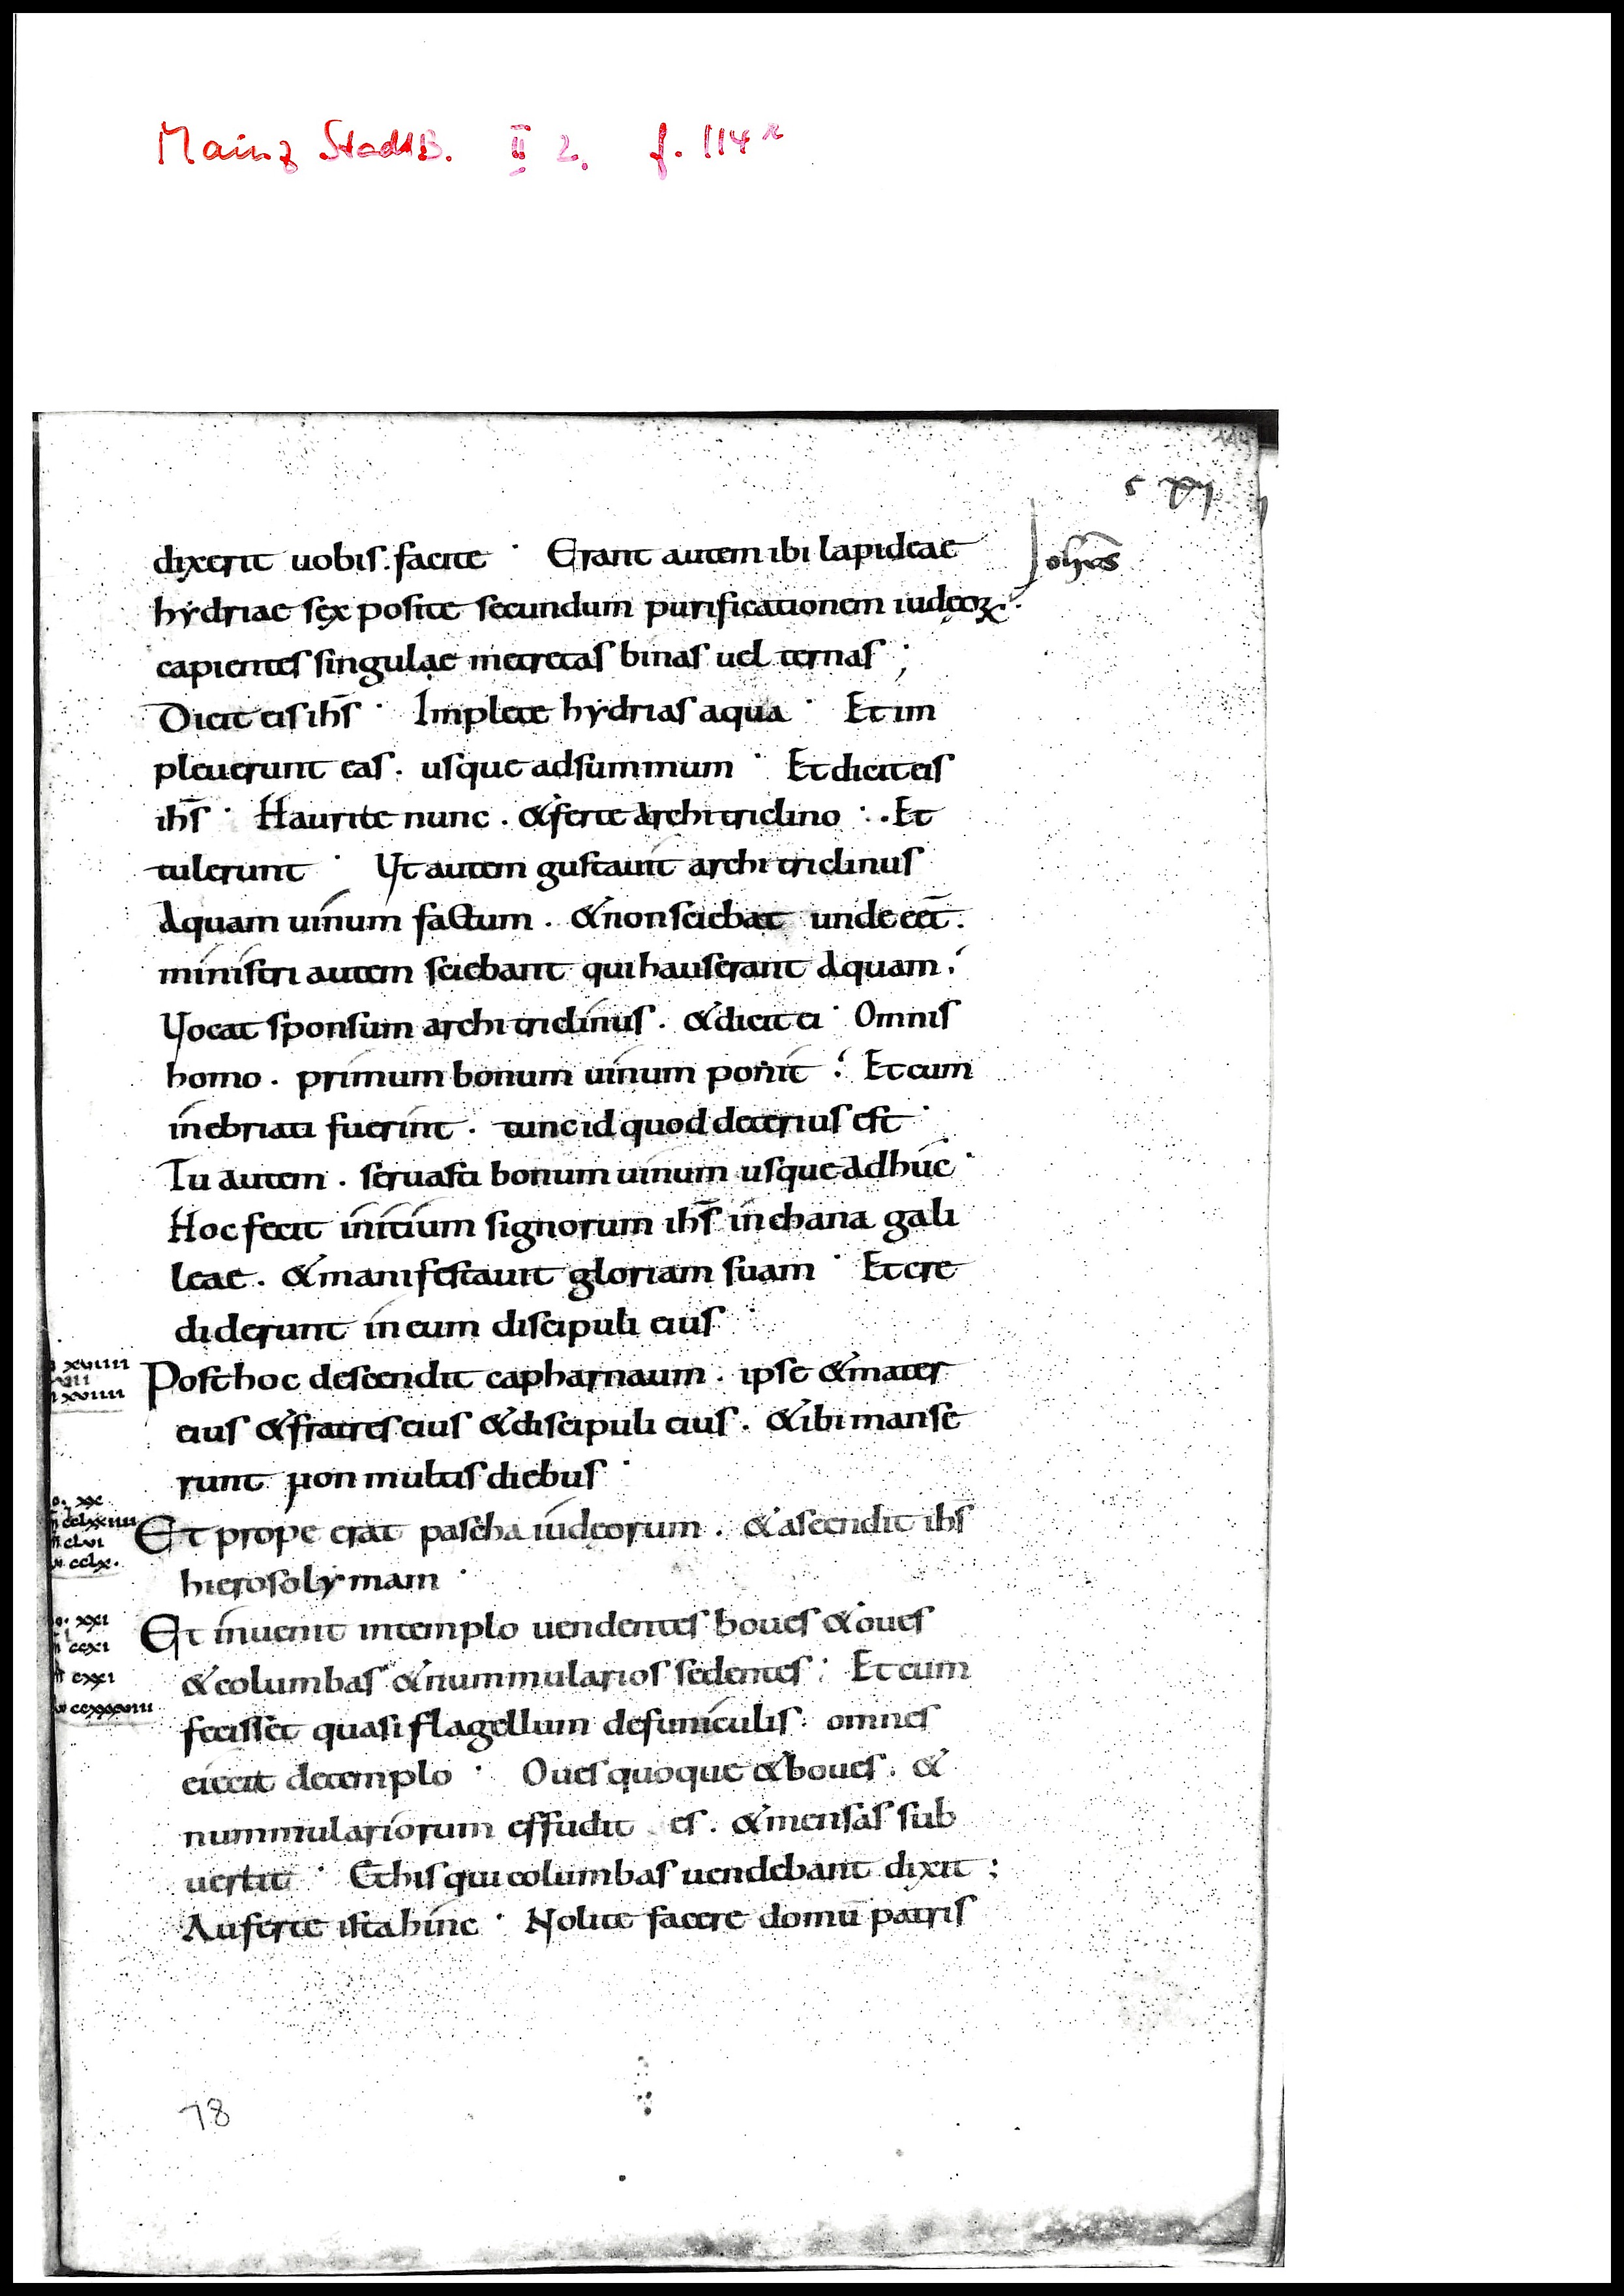 Mainz StadtB. II 2. f. 114r
114
dixerit uobis . facite · Erant autem ibi lapideae
Joh̅es
hydriae sex posite secundum purificationem iudęoꝝ ·
capientes singulae metretas binas uel ternas ;
Dicit eis ih̅s · Implete hydrias aqua · Et im
pleuerunt eas . usque adsummum · Et dicit eis
ih̅s · Haurite nunc . & ferte architriclino : . Et
tulerunt · Vt autem gustauit architriclinus
aquam uinum factum . & non sciebat unde eet̅ .
ministri autem sciebant qui hauserant aquam .
Vocat sponsum architriclinus . & dicit ei · Omnis
homo . primum bonum uinum ponit : Et cum
inebriati fuerint . tunc id quod deterius est ·
Tu autem . seruasti bonum uinum usque adhuc ·
Hoc fecit initium signorum ih̅s in chana gali
leae . & manifestauit gloriam suam · Et cre
diderunt in eum discipuli eius ·
xuiiii
Posthoc descendit capharnaum . ipse & mater
eius & fratres eius & discipuli eius . & ibi manse
runt non multis diebus ·
xx
cclxxiiii
Et prope erat pascha iudeorum . & ascendit ih̅s
clui
cclx .
hierosolymam ·
xxi
Et inuenit in templo uendentes boues & oues
ccxi
cxxi
& columbas & nummularios sedentes ; Et cum
fecisset quasi flagellum defuniculis : omnes
eiecit detemplo · Oues quoque & boues . &
nummulariorum effudit es . & mensas sub
uertit · Et his qui columbas uendebant dixit ;
Auferte ista hinc · Nolite facere domu̅ patris
78